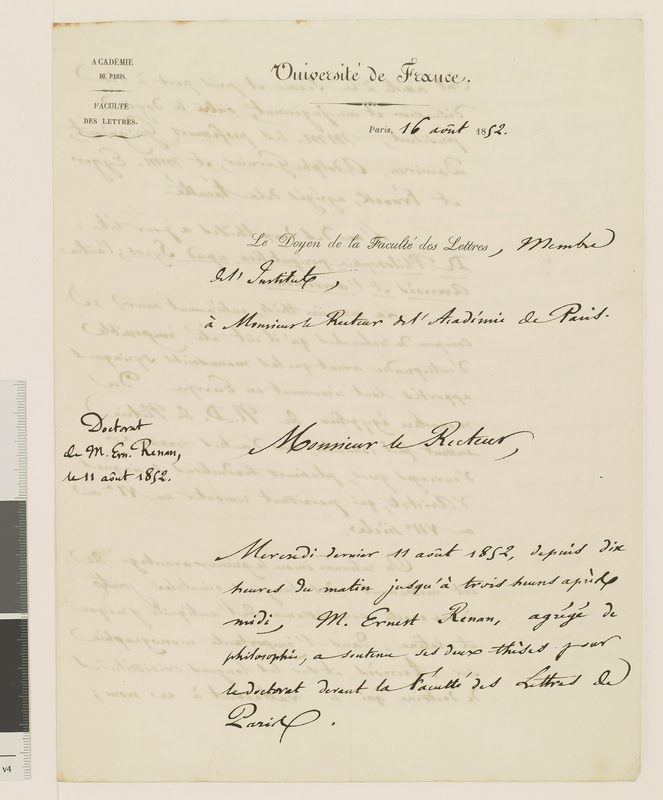 ACADÉMIE
DE PARIS.
FACULTÉ
DES LETTRES.
Université de France.
Paris, 16 août 1852.
Le Doyen de la Faculté des Lettres, Membre
de l'Institut,
à Monsieur le Recteur de l'Académie de Paris.
Doctorat
de M. Ern. Renan,
le 11 août 1852.
Monsieur le Recteur,
Mercredi dernier 11 août 1852, depuis dix
heures du matin jusqu'à trois heures après
midi, M. Ernest Renan, agrégé de
philosophie, a soutenu ses deux thèses pour
le doctorat devant la Faculté des Lettres de
Paris.
v4